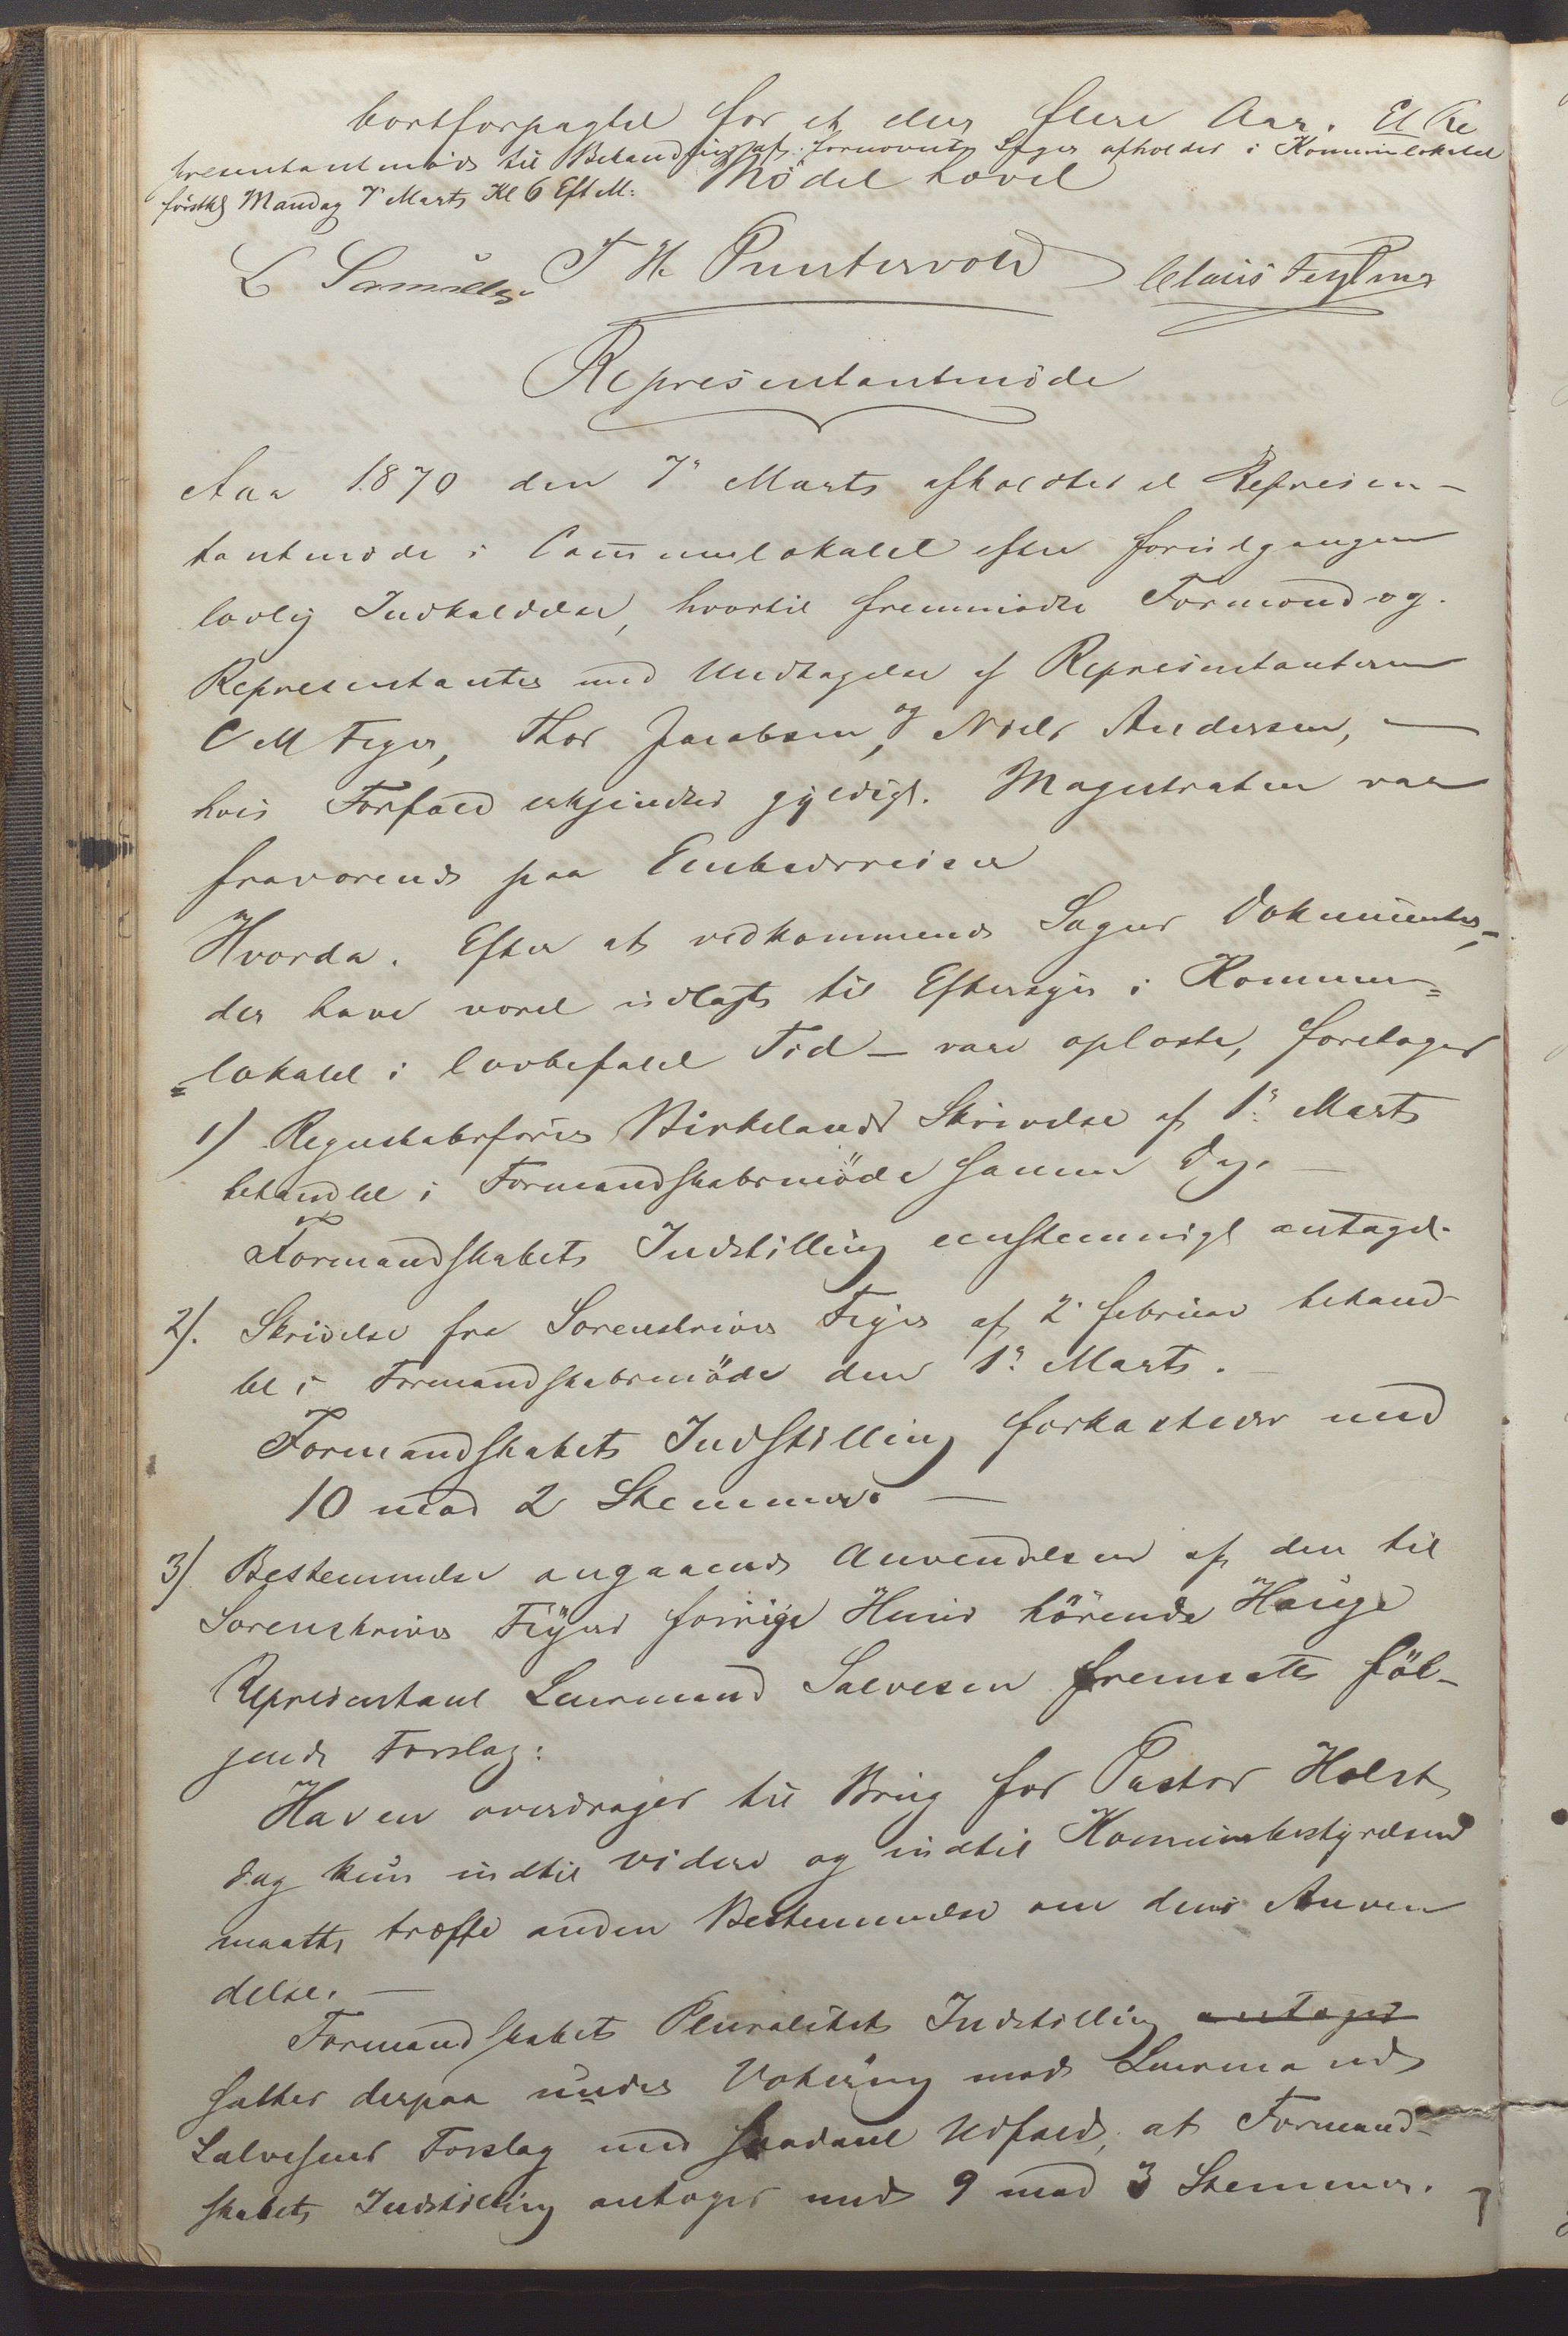 bortforpagtet for et eller flere Aar. Et Re
presentantmøde til Behandling af fornævnte Sager afholdes i Kommunelokalet
førstk. Mandag 7de Marts Kl 6 Eft M. Mødet hævet
L Samuelsen T H Puntervold Claus Feyling
Representantmøde
Aar 1870 den 7de Marts afholdtes et Represen-
tantmøde i Communelokalet efter forudgangen
lovlig Indkaldelse, hvortil fremmødte Formænd og
Representanter med Undtagelse af Representanterne
C M Feyer, Thor Jacobsen, og Niels Andersen, —
hvis Forfald erkjendtes gyldigt. Magistraten var
fraværende paa Embedsreiser
Hvorda. Efter at vedkommende Sagers Dokumenter, –
der have været udlagte til Eftersyn i Kommune=
=lokalet i lovbefalet Tid – vare oplæste, foretages
1) Regnskabsfører Birkelands Skrivelse af 1ste Marts
behandlet i Formandskabsmøde samme Dag. —
Formandskabets Indstilling eenstemmigt antaget.
2). Skrivelse fra Sorenskriver Feyer af 2 Februar behand-
let i Formandskabsmøde den 1ste Marts. —
Formandskabets Indstilling forkastedes med
10 mod 2 Stemmer. —
3) Bestemmelse angaaende Anvendelsen af den til
Sorenskriver Feyers forrige Huus hørende Hauge
Representant Leurmand Salvesen fremsatte føl-
gende Forslag:
Haven overdrages til Brug for Pastor Holst
dog kun indtil videre og indtil Kommunebestyrelsen
maatte træffe anden Bestemmelse om dens Anven
delse. —
Formandskabets Pluralitets Indstilling antages
sattes derpaa under Votering mod Leurmand
Salvesens Forslag med saadant Udfald, at Formand-
skabets Indstilling antoges med 9 mod 3 Stemmer.